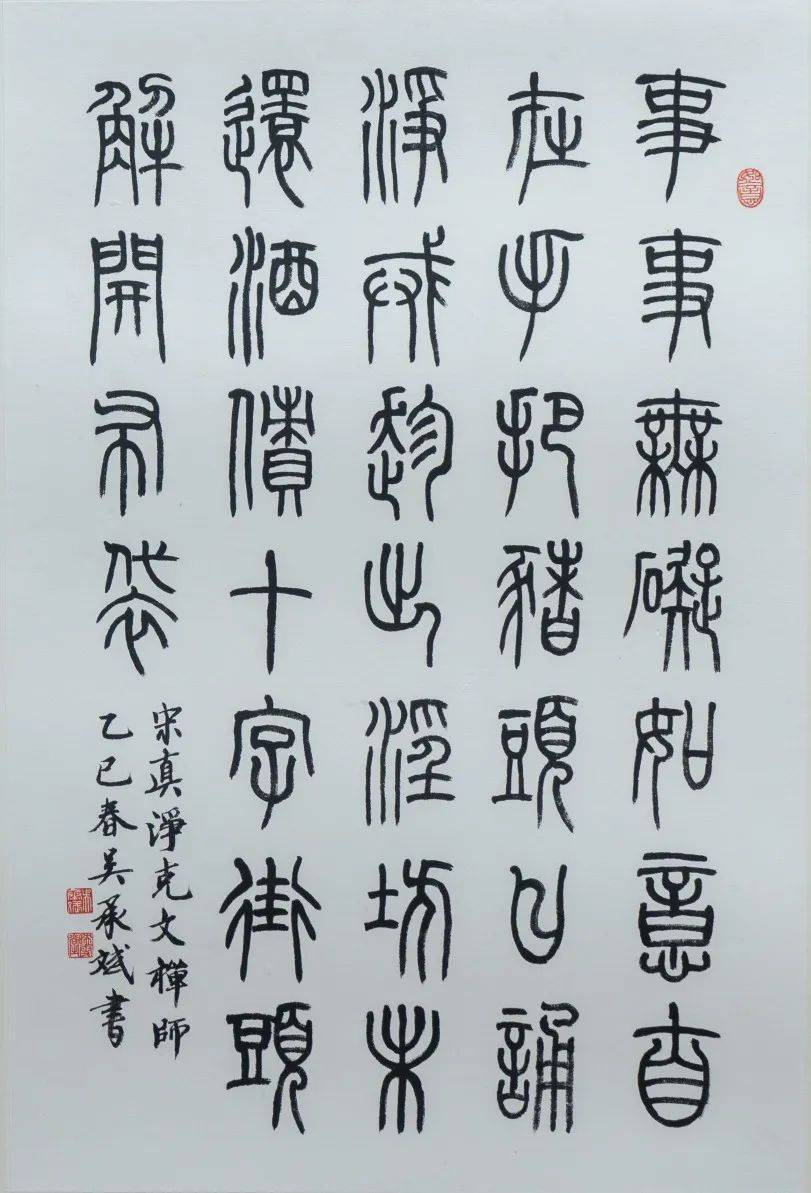 事事無礙如意自
在手把豬頭口誦
淨戒趁出淫坊未
還酒債十字街頭
解開布袋
宋真淨克文禪師
乙巳春吴承斌書